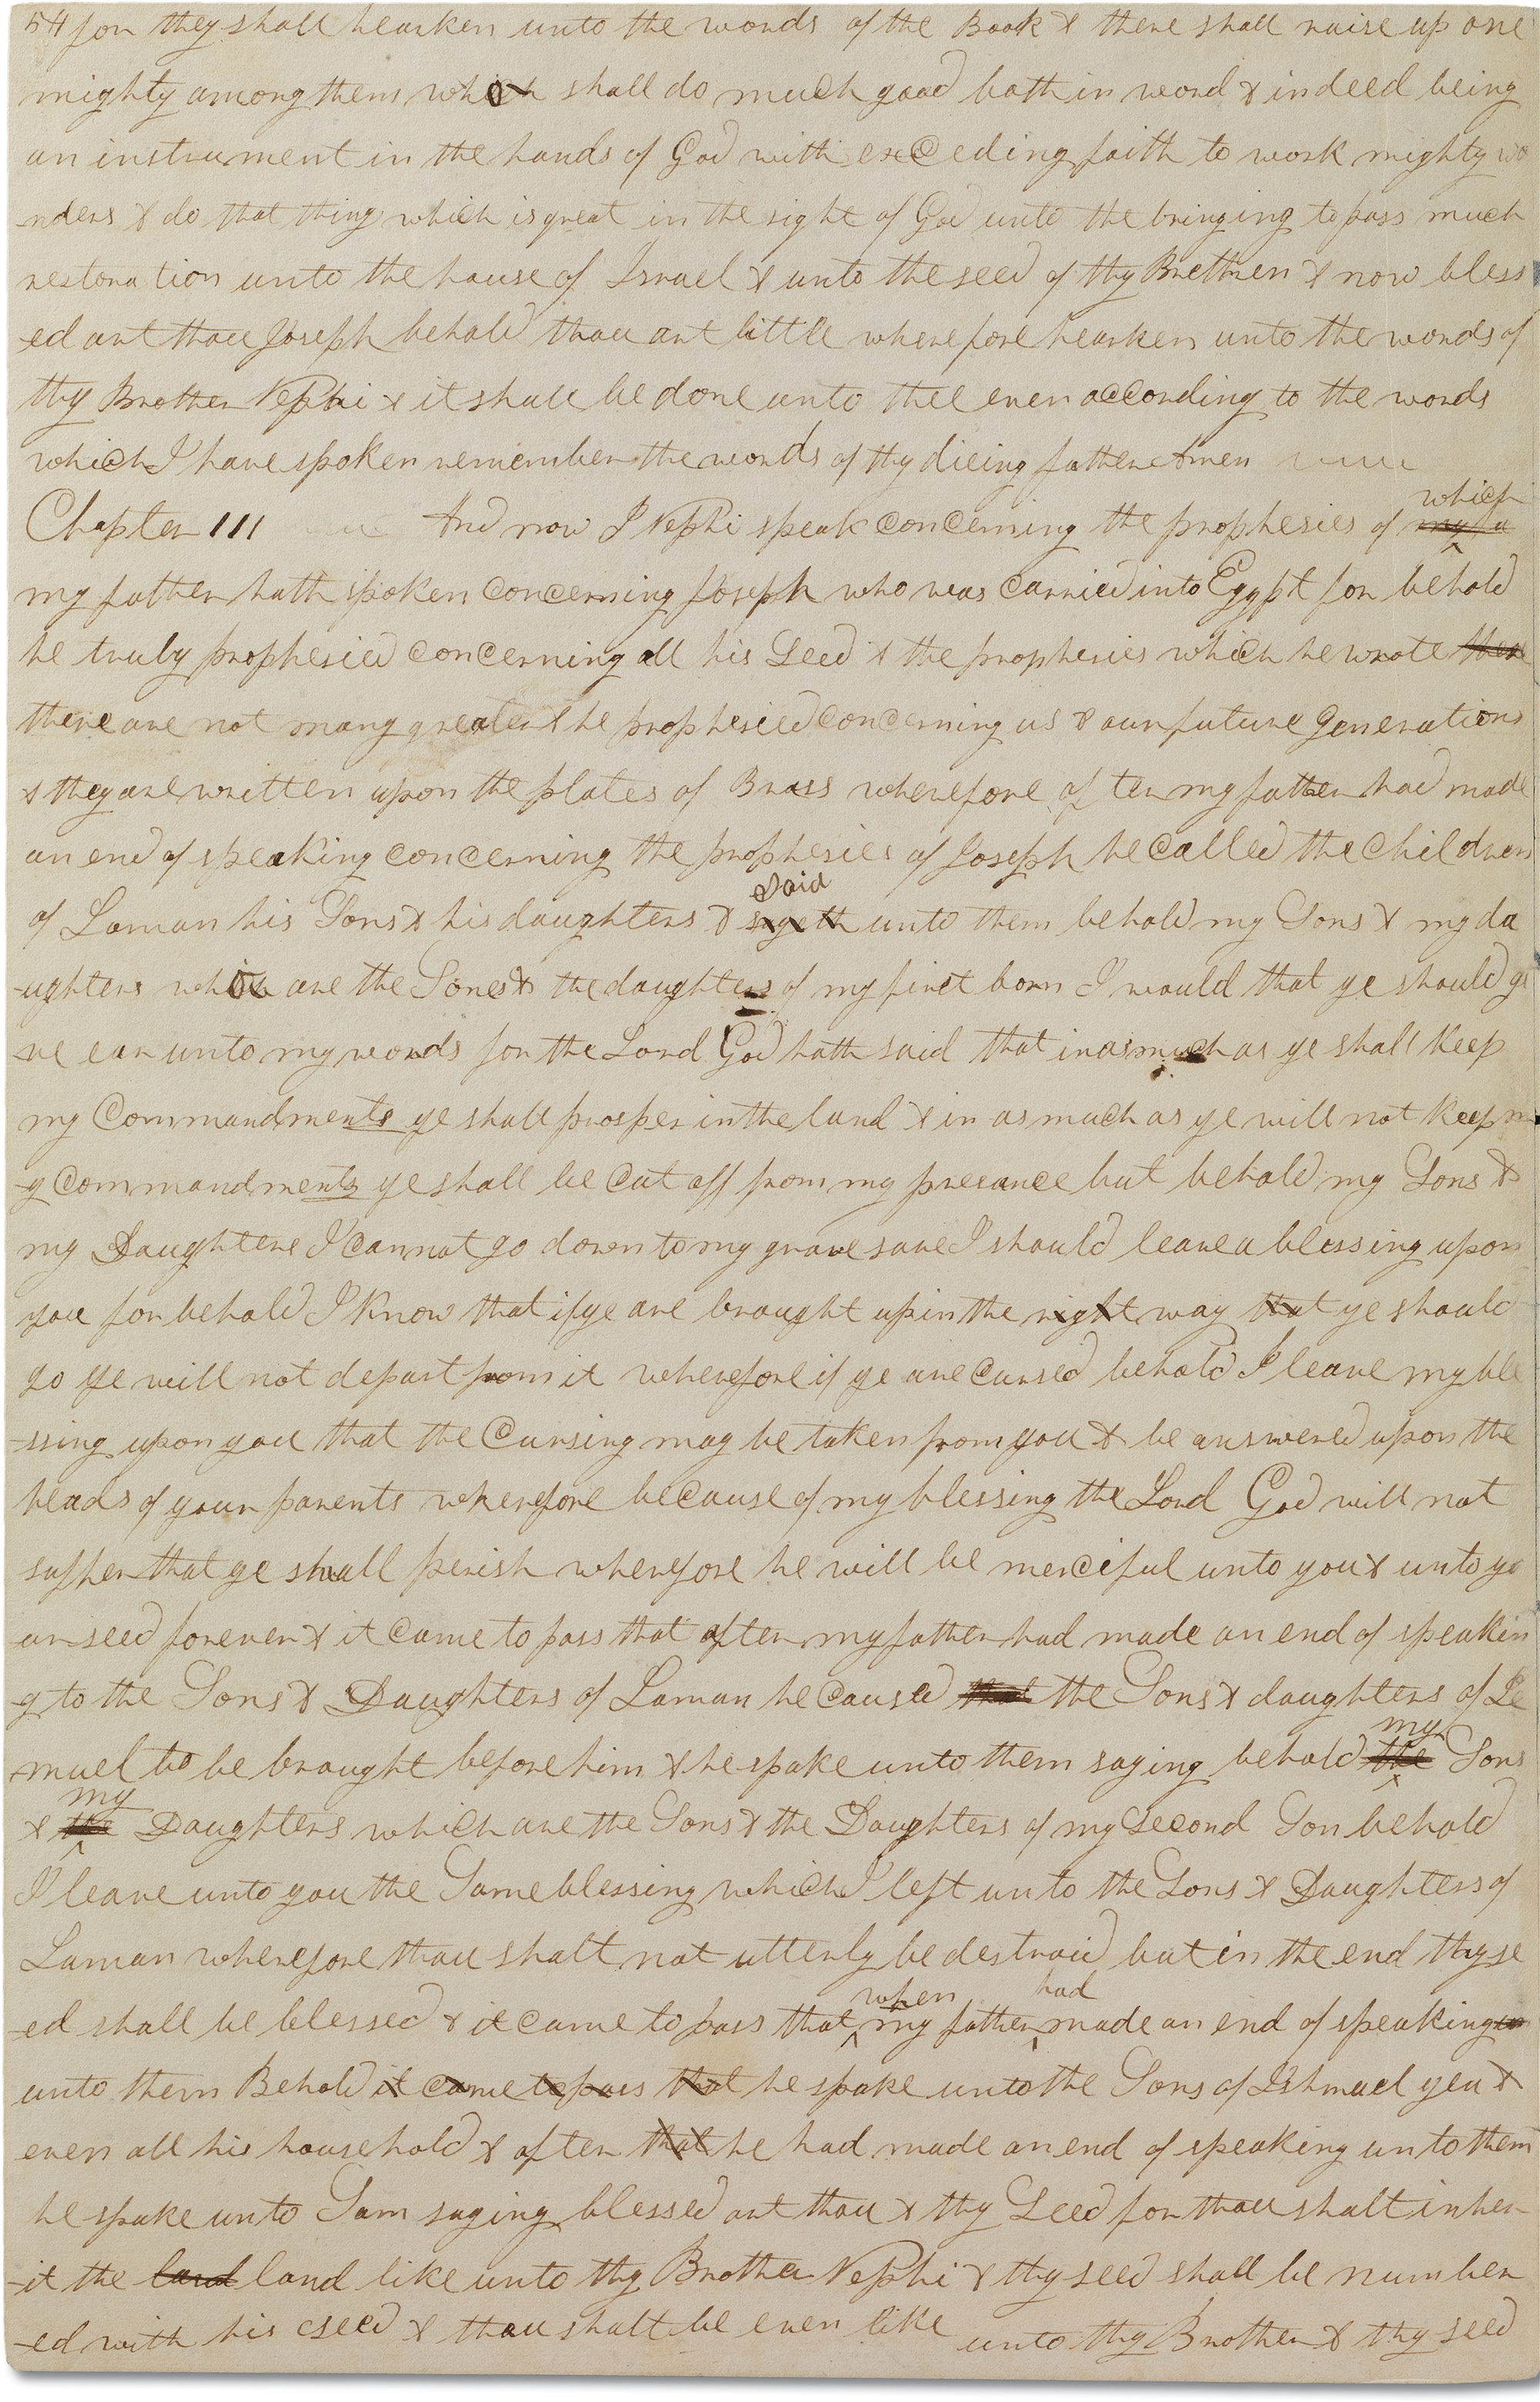 54 for they shall hearken unto the words of the Book & there shall raise up one
mighty among them which shall do much good both in word & in deed being
an instrument in the hands of God with exceding faith to work mighty wo
-nders & do that thing which is great in the sight of God unto the bringing to pass much
restoration unto the house of Israel & unto the seed of thy Brethren & now bless
-ed art thou Joseph behold thou art little wherefore hearken unto the words of
thy Brother Nephi & it shall be done unto thee even according to the words
which I have spoken remember the words of thy dieing father Amen
which
Chapter III And now I Nephi speak concerning the prophesies of my a
my father hath spoken concerning Joseph who was carried into Egypt for behold
he truly prophesied concerning all his Seed & the prophesies which he wrote there
there are not many greater & he prophesied concerning us & our future generations
& they are written upon the plates of Brass wherefore after my father had made
an end of speaking concerning the prophesies of Joseph he called the children
said
of Laman his Sons & his daughters & sayeth unto them behold my Sons & my da
-ughters which are the Sones & the daughters of my first born I would that ye should gi
-ve ear unto my words for the Lord God hath said that inasmuch as ye shall keep
my commandments ye shall prosper in the land & in as much as ye will not keep m
-y commandments ye shall be cut off from my presance but behold my Sons &
my Daughters I cannot go down to my grave save I should leave a blessing upon
you for behold I know that if ye are brought up in the right way that ye should
go ye will not depart from it wherefore if ye are cursed behold I leave my ble
-ssing upon you that the cursing may be taken from you & be answered upon the
heads of your parents wherefore because of my blessing the Lord God will not
suffer that ye shall perish wherefore he will be merciful unto you & unto yo
-ur seed forever & it came to pass that after my father had made an end of speakin
-g to the Sons & Daughters of Laman he caused that the Sons & daughters of Le
my
muel to be brought before him & he spake unto them saying behold the Sons
my
& the Daughters which are the Sons & the Daughters of my second Son behold
I leave unto you the Same blessing which I left unto the Sons & Daughters of
Laman wherefore thou shalt not utterly be destroid but in the end thy se
when had
-ed shall be blessed & it came to pass that my father made an end of speaking un
unto them Behold it came to pass that he spake unto the Sons of Ishmael yea &
even all his household & after that he had made an end of speaking unto them
he spake unto Sam saying blessed art thou & thy Seed for thou shalt inher
-it the land land like unto thy Brother Nephi & thy seed shall be number
-ed with his seed & thou shalt be even like unto thy Brother & thy seed